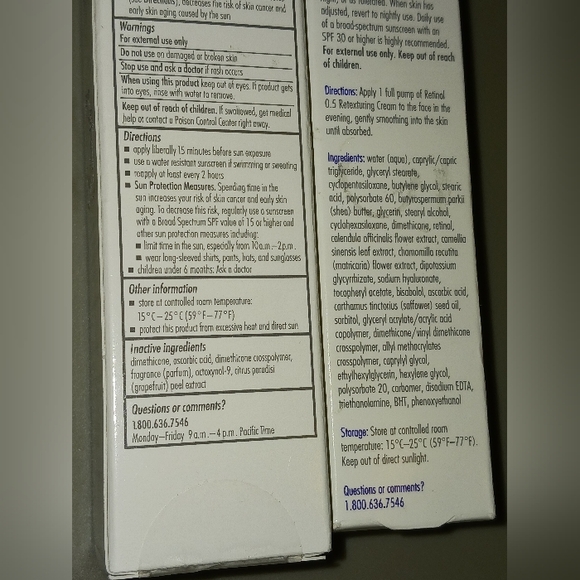 (see Directions), decreases the risk of skin cancer and
early skin aging caused by the sun
Warnings
For external use only
Do not use on damaged or broken skin
Stop use and ask a doctor if rash occurs
When using this product keep out of eyes. If product gets
into eyes, rinse with water to remove.
Keep out of reach of children. If swallowed, get medical
help or contact a Poison Control Center right away.
Directions
▪ apply liberally 15 minutes before sun exposure
▪ use a water resistant sunscreen if swimming or sweating
▪ reapply at least every 2 hours
▪ Sun Protection Measures. Spending time in the
sun increases your risk of skin cancer and early skin
aging. To decrease this risk, regularly use a sunscreen
with a Broad Spectrum SPF value of 15 or higher and
other sun protection measures including:
▪ limit time in the sun, especially from 10a.m.–2p.m.
▪ wear long-sleeved shirts, pants, hats, and sunglasses
▪ children under 6 months: Ask a doctor
Other information
▪ store at controlled room temperature:
15°C–25°C (59°F–77°F)
▪ protect this product from excessive heat and direct sun
Inactive ingredients
dimethicone, ascorbic acid, dimethicone crosspolymer,
fragrance (parfum), octoxynol-9, citrus paradisi
(grapefruit) peel extract
Questions or comments?
1.800.636.7546
Monday–Friday 9 a.m.–4 p.m. Pacific Time
night, or as tolerated. When skin has
adjusted, revert to nightly use. Daily use
of a broad-spectrum sunscreen with an
SPF 30 or higher is highly recommended.
For external use only. Keep out of reach
of children.
Directions: Apply 1 full pump of Retinol
0.5 Retexturing Cream to the face in the
evening, gently smoothing into the skin
until absorbed.
Ingredients: water (aqua), caprylic/capric
triglyceride, glyceryl stearate,
cyclopentasiloxane, butylene glycol, stearic
acid, polysorbate 60, butyrospermum parkii
(shea) butter, glycerin, stearyl alcohol,
cyclohexasiloxane, dimethicone, retinol,
calendula officinalis flower extract, camellia
sinensis leaf extract, chamomilla recutita
(matricaria) flower extract, dipotassium
glycyrrhizate, sodium hyaluronate,
tocopheryl acetate, bisabolol, ascorbic acid,
carthamus tinctorius (safflower) seed oil,
sorbitol, glyceryl acrylate/acrylic acid
copolymer, dimethicone/vinyl dimethicone
crosspolymer, allyl methacrylates
crosspolymer, caprylyl glycol,
ethylhexylglycerin, hexylene glycol,
polysorbate 20, carbomer, disodium EDTA,
triethanolamine, BHT, phenoxyethanol
Storage: Store at controlled room
temperature: 15°C–25°C (59°F–77°F).
Keep out of direct sunlight.
Questions or comments?
1.800.636.7546